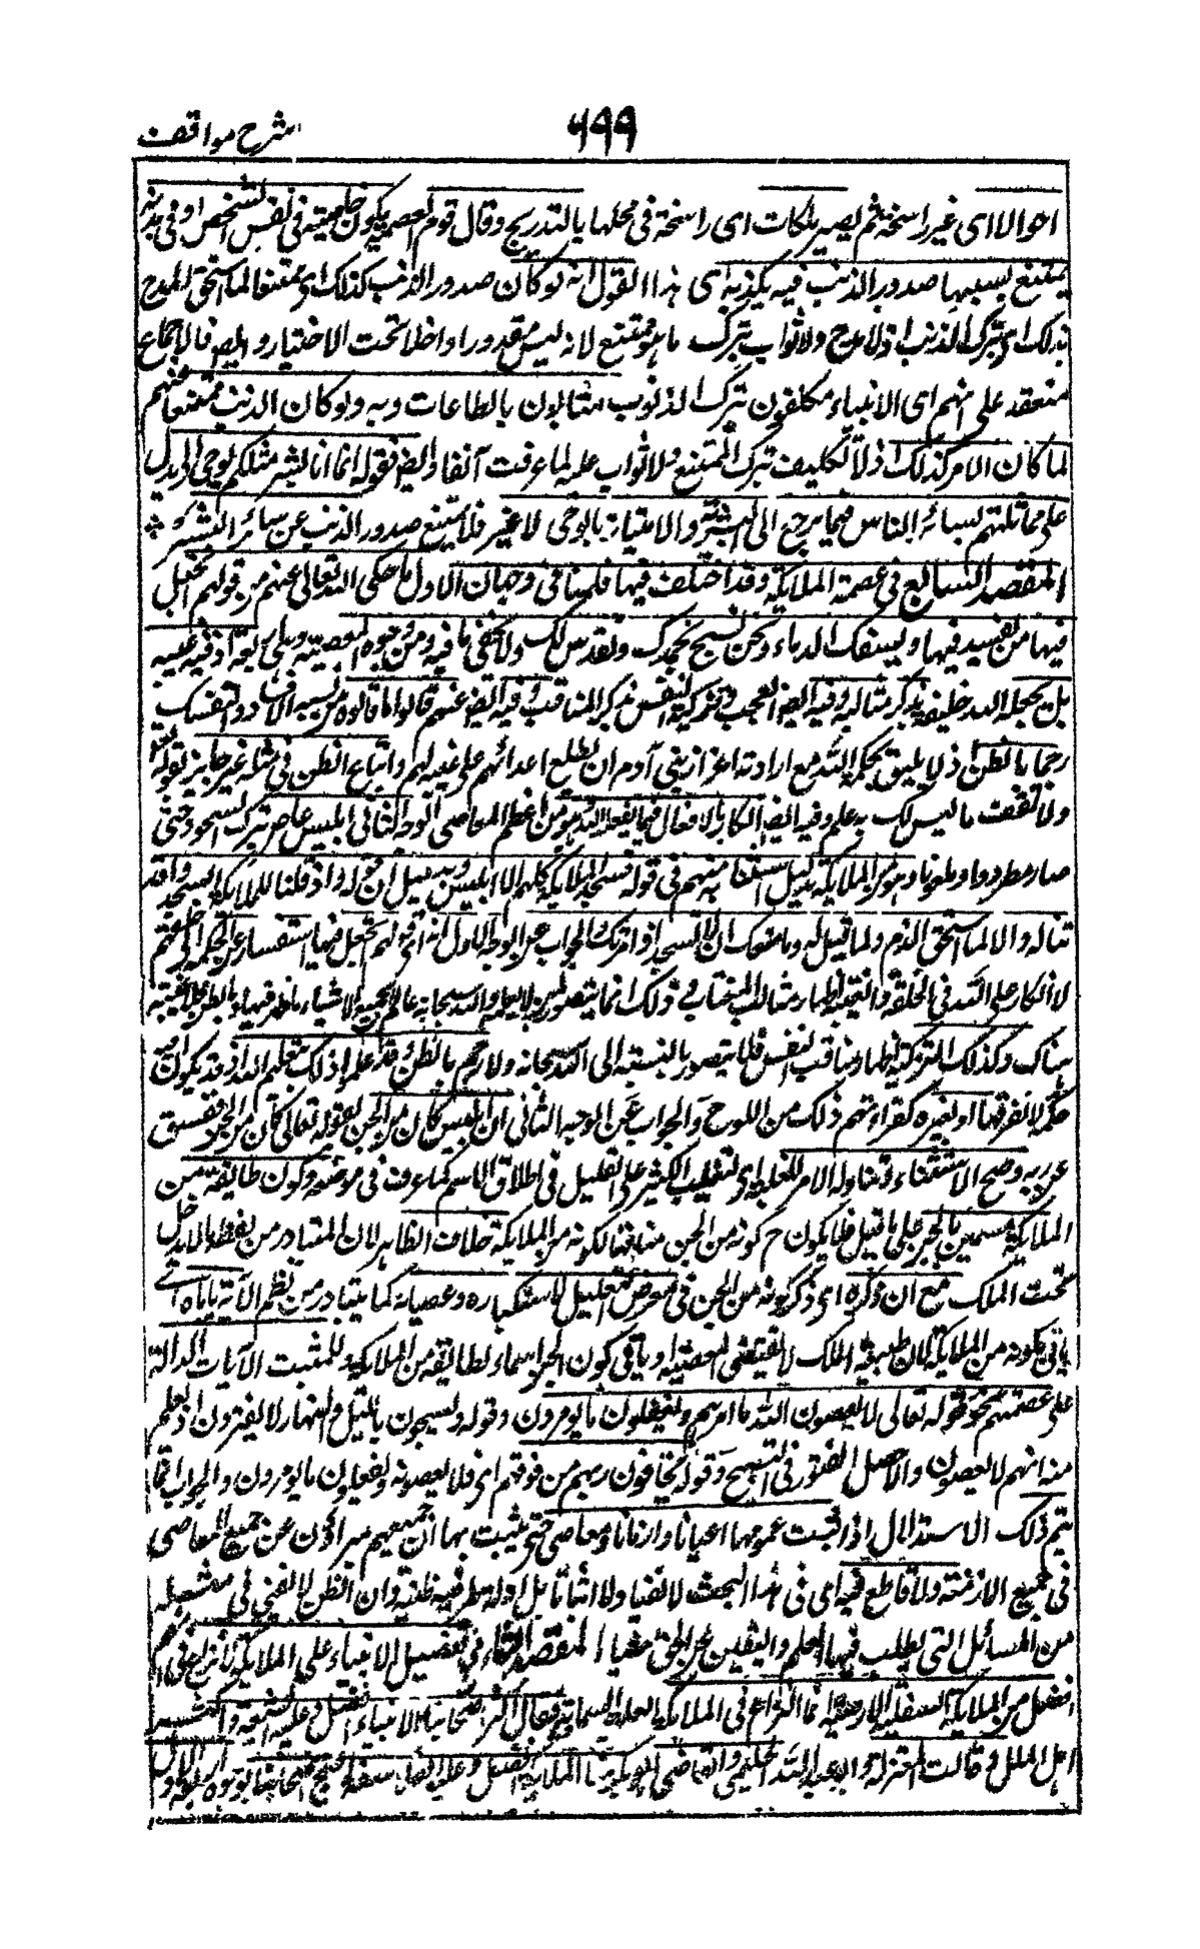 شرح مواقف
۶۹۹
احوالا اى غير راسخة ثم يصير ملكات اى راسخة فى محلها بالتدريج وقال قوم العصمة يكون خاصية فى نفس الشخص او فى بدنه
يمتنع بسببها صدور الذنب فيه يكذبه اى هذا القول انه لو كان صدور الذنب كذلك اى ممتنعا لما استحق المدح
بذلك اى بترك الذنب اذ لا مدح ولا ثواب بترك ما هو ممتنع لانه ليس مقدورا داخلا تحت الاختيار وايضا فالاجماع
منعقد على انهم اى الانبياء مكلفون بترك الذنوب مثابون بالطاعات وبه ولو كان الذنب ممتنعا عنهم
لما كان الامر كذلك اذ لا تكليف بترك الممتنع ولا ثواب عليه لما عرفت آنفا وايضا فقوله انما انا بشر مثلكم يوحى الى يدل
على مماثلتهم لسائر الناس فيما يرجع الى البشرية والامتياز بالوحى لا غير فلا يمتنع صدور الذنب عن سائر البشر
المقصد السابع فى عصمة الملايكة وقد اختلف فيها فللنافى وجهان الاول ما حكى الله تعالى عنهم من قولهم اتجعل
فيها من يفسد فيها ويسفك الدماء ونحن نسبح بحمدك ونقدس لك ولا يخفى ما فيه من وجوه المعصية وهى اربعة اذ فيه غيبة
بل يجعله الله خليفة بذكر مثالبه وفيه ايضا العجب وتزكية النفس بذكر المناقب وفيه ايضا انهم قالوا ما قالوه من نسبة الافساد والسفك
رجما بالظن اذ لا يليق بحكمة الله مع ارادته اعزاز بنى آدم ان يطلع اعدائهم على عيوبهم واتباع الظن فى مثله غير جايز لقوله تعالى
ولا تقف ما ليس لك به علم وفيه ايضا انكار بالافعال فيما يفعله الله وهو من اعظم المعاصى الوجه الثانى ابليس عاص بترك السجود حتى
صار مطرودا وملعونا وهو من الملايكة بدليل استثنائه منهم فى قوله فسجد الملايكة كلهم الا ابليس وبدليل ان قوله واذ قلنا للملايكة اسجدوا قد
تناوله والا لما استحق الذم ولما قيل له وما منعك ان لا تسجد اذ امرتك الجواب عن الوجه الاول انه اى قولهم اتجعل فيها استفسار عن الحكمة فى خلقتهم
لا انكار على الله فى خلقه والغيبة اظهار مثالب المغتاب وذلك انما يتصور لمن لا يعلمه والله سبحانه عالم بجميع الاشياء ما ظهر فيها وما بطن فلا غيبة
هناك وكذلك التزكية اظهار مناقب النفس فلا يتصور بالنسبة الى الله سبحانه ولا رجم بالظن وقد علموا ذلك بتعليم الله اذ قد يكون فيه
حكمة لا نعرفها او بغيره كقراءتهم ذلك من اللوح والجواب عن الوجه الثانى ان ابليس كان من الجن لقوله تعالى كان من الجن ففسق
عن امر ربه وصح الاستثناء وتناوله الامر للغلبة اى لتغليب الكثير على القليل فى اطلاق الاسم كما عرفت فى موضعه وكون طايفة من
الملايكة مسمين بالجن على ما قيل فلا يكون ح كونه من الجن منافيا لكونه من الملايكة خلاف الظاهر لان المتبادر من لفظه لا يدخل
تحت الملك مع ان ذكره اى ذكر كونه من الجن فى معرض التعليل لاستكباره وعصيانه كما يتبادر من نظم الآية يأباه اى
يابى كونه من الملايكة لان طبيعة الملك لا تقتضى المعصية ويابى كون الجن اسماء لطايفة من الملايكة وللمثبت الآيات الدالة
على عصمتهم نحو قوله تعالى لا يعصون الله ما امرهم ويفعلون ما يؤمرون وقوله ويسبحون بالليل والنهار لا يفترون اذ يعلم
منه انهم لا يعصون والا حصل الفتور فى التسبيح وقوله يخافون ربهم من فوقهم اى فلا يعصونه ويفعلون ما يؤمرون والجواب انما
يتم ذلك الاستدلال اذا ثبت عمومها اعيانا وازمانا ومعاصى حتى يثبت بها ان جميعهم مبراؤن عن جميع المعاصى
فى جميع الازمنة ولا قاطع فيه اى فى هذا البحث لا نفيا ولا اثباتا بل ادلة طرفيه ظنية وان الظن لا يغنى فى مثله
من المسائل التى يطلب فيها العلم واليقين عن الحق شيئا المقصد الثامن فى تفضيل الانبياء على الملايكة لا نزاع فى انهم
افضل من الملايكة السفلية الارضية انما النزاع فى الملايكة العلوية السماوية فقال اكثر اصحابنا الانبياء افضل وعليه الشيعة واكثر
اهل الملل وقالت المعتزلة وابو عبد الله الحليمى والقاضى ابو بكر منا الملايكة افضل وعليه الفلاسفة احتج اصحابنا بوجوه اربعة الاول